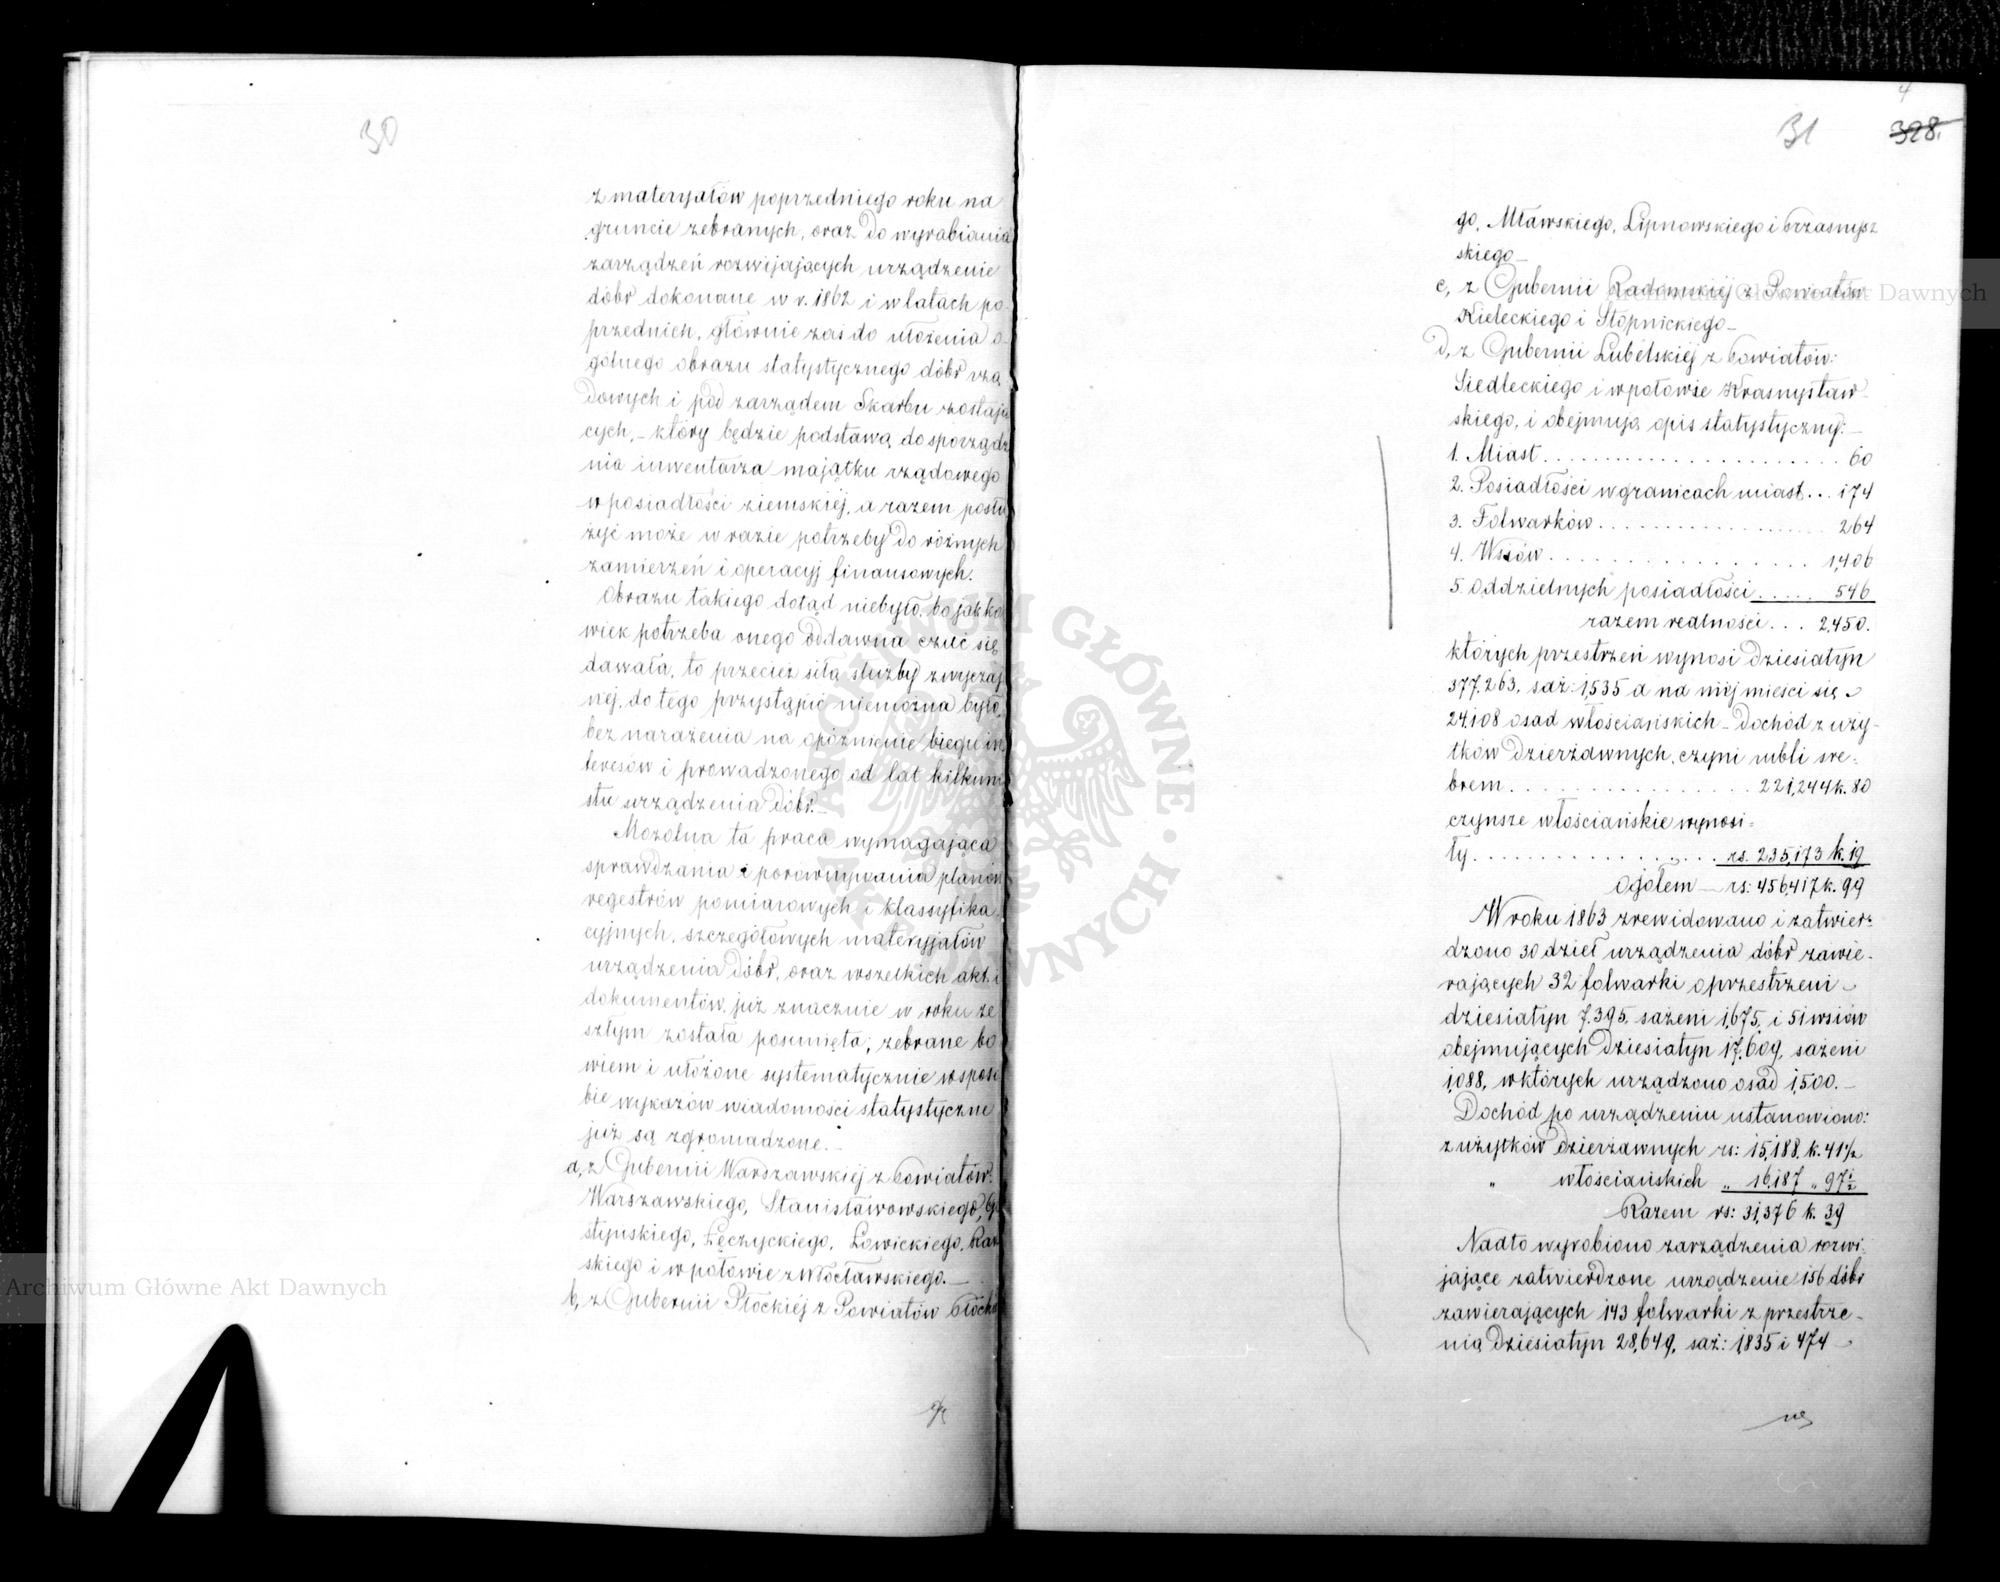 30
z materyałów poprzedniego roku na
gruncie zebranych, oraz do wyrabiania
zarządzeń rozwijających urządzenie
dóbr dokonane w r. 1862 i w latach po
przednich, głównie zaś do ułożenia o-
gólnego obrazu statystycznego dóbr rzą
dowych i pod zarządem Skarbu zostają
cych, - który będzie podstawą do sporządze
nia inwentarza majątku rządowego
w posiadłości ziemskiéj, a razem posłu
żyć może w razie potrzeby do różnych
zamierzeń i operacyj finansowych.
Obrazu takiego dotąd niebyło, bo jakkol
wiek potrzeba onego oddawna czuć się
dawała, to przecież siłą służby zwyczaj
néj, do tego przystąpić niemożna było,
bez narażenia na opóźnienie biegu in
teresów i prowadzonego od lat kilkuna
stu urządzenia dóbr. -
Mozolna ta praca wymagająca
sprawdzania i porównywania planów
regestrów pomiarowych i klassyfika
cyjnych, szczegółowych materyjałów
urządzenia dóbr, oraz wszelkich akt i
dokumentów, już znacznie w roku ze
szłym została posunięta; zebrane bo
wiem i ułożone systematycznie w sposo
bie wykazów wiadomości statystyczne
już są zgromadzone. -
a, z Gubernii Warszawskiéj z Powiatów:
Warszawskiego, Stanisławowskiego, Go
styńskiego, Łęczyckiego, Łowickiego, Raw
skiego i w połowie z Włocławskiego. -
b, z Gubernii Płockiéj z Powiatów Płockie
31
328.
4
go, Mławskiego, Lipnowskiego i Przasnysz
skiego -
c, z Gubernii Radomskiéj z Powiatów
Kieleckiego i Stopnickiego -
d, z Gubernii Lubelskiéj z Powiatów:
Siedleckiego i w połowie Krasnystaw-
skiego, i obejmują opis statystyczny: -
1. Miast . . . . . . . . . . . . . . . . . . . . . . 60
2. Posiadłości w granicach miast . . . 174
3. Folwarków . . . . . . . . . . . . . . . . . . 264
4. Wsiów . . . . . . . . . . . . . . . . . . 1,406
5. Oddzielnych posiadłości . . . . . 546
razem realności . . . 2,450.
których przestrzeń wynosi dziesiatyn
377,263, saż: 1,535 a na niéj mieści się
24,108 osad włościańskich - Dochód z uży-
tków dzierżawnych, czyni rubli sre-
brem . . . . . . . . . . . . . . . . . 221,244 k. 80
czynsze włościańskie wynosi-
ły . . . . . . . . . . . . . . . . . rs. 235,173 k. 19
Ogółem — rs: 456,417 k. 99
W roku 1863 zrewidowano i zatwier-
dzono 30 dzieł urządzenia dóbr zawie-
rających 32 folwarki o przestrzeni
dziesiatyn 7,395, sażeni 1,675, i 51 wsiów
obejmujących dziesiatyn 17,609, sażeni
1,088, w których urządzono osad 1,500. -
Dochód po urządzeniu ustanowiono:
z użytków dzierżawnych rs: 15,188 k. 41 1/2
" włościańskich " 16,187 " 97 1/2
Razem rs: 31,376 k. 39
Nadto wyrobiono zarządzenia rozwi-
jające zatwierdzone urządzenie 156 dóbr
zawierających 143 folwarki z przestrze-
nią dziesiatyn 28,649, saż: 1,835 i 474
Archiwum Główne Akt Dawnych
Archiwum Główne Akt Dawnych
ARCHIWUM GŁÓWNE AKT DAWNYCH